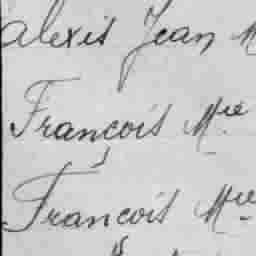 alexis Jean M
François Mie
François Mie